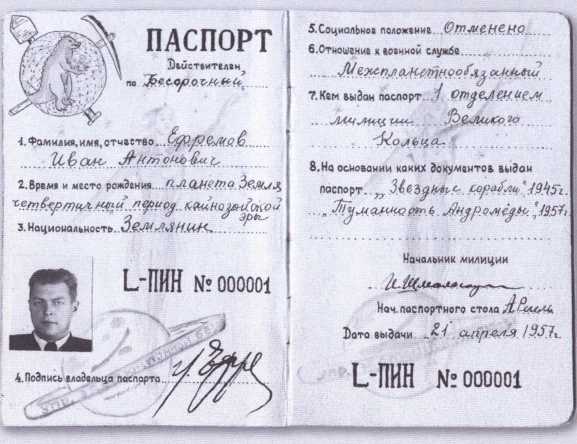 ПАСПОРТ
Действителен
по Бессрочный
1. Фамилия, имя, отчество Ефремов
Иван Антонович
2. Время и место рождения планета Земля,
четвертичный период кайнозойской
эры
3. Национальность Землянин
L-ПИН № 000001
4. Подпись владельца паспорта
5. Социальное положение Отменено
6. Отношение к военной службе
Межпланетнообязанный
7. Кем выдан паспорт 1 отделением
милиции Великого
Кольца
8. На основании каких документов выдан
паспорт "Звездные корабли", 1945г.
"Туманность Андромеды", 1957г.
Начальник милиции
Нач. паспортного стола
Дата выдачи 21 апреля 1957г.
L-ПИН № 000001